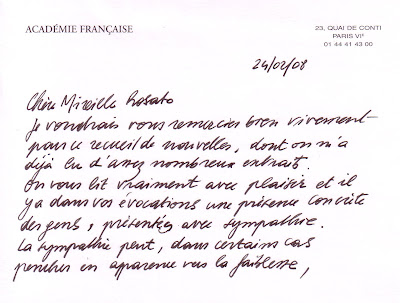 ACADÉMIE FRANÇAISE
23, QUAI DE CONTI
PARIS VIᵉ
01 44 41 43 00
24/02/08
Chère Mireille Rosato
Je voudrais vous remercier bien vivement
pour ce recueil de nouvelles, dont on m'a
déjà lu d'assez nombreux extraits.
On vous lit vraiment avec plaisir et il
y a dans vos évocations une présence concrète
des gens, présentés avec sympathie.
La sympathie peut, dans certains cas
pencher en apparence vers la faiblesse,